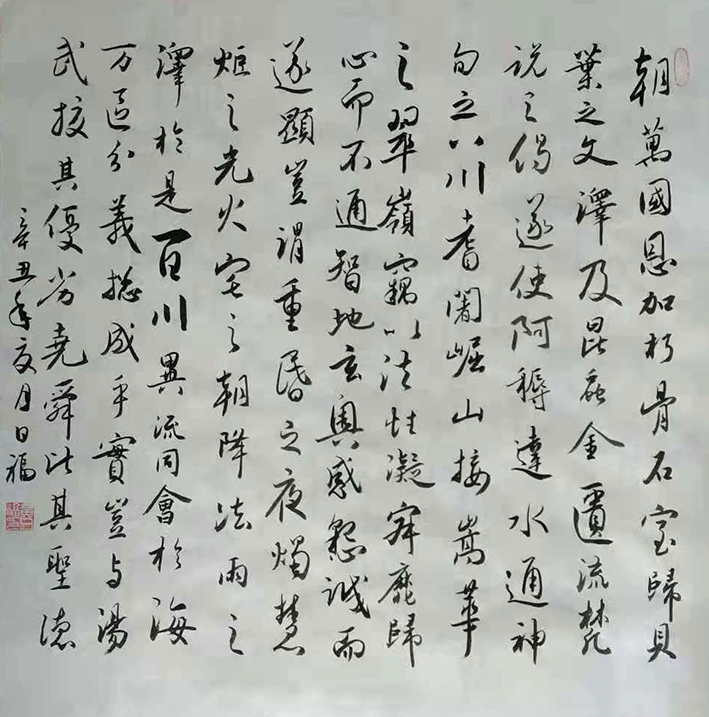 朝萬國恩加朽骨石室歸貝
葉之文澤及昆蟲金匱流梵
説之偈遂使阿耨達水通神
甸之八川耆闍崛山接嵩華
之翠嶺竊以法性凝寂靡歸
心而不通智地玄奧感懇誠而
遂顯豈謂重昏之夜燭慧
炬之光火宅之朝降法雨之
澤於是百川異流同會於海
万區分義總成乎實豈与湯
武校其優劣堯舜比其聖德
辛丑年夏月日福